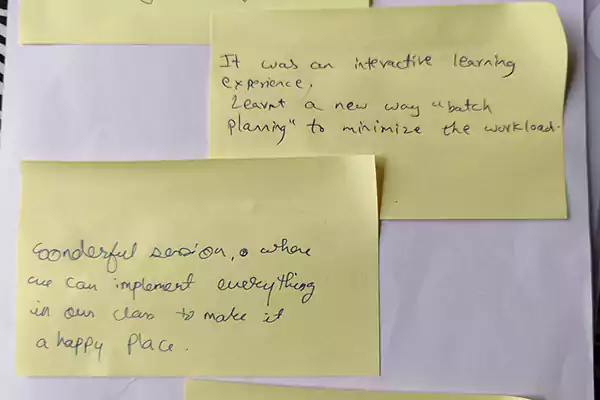 It was an interactive learning
experience.
Learnt a new way "batch
planning" to minimize the workload.
Wonderful session, where
we can implement everything
in our class to make it
a happy place.